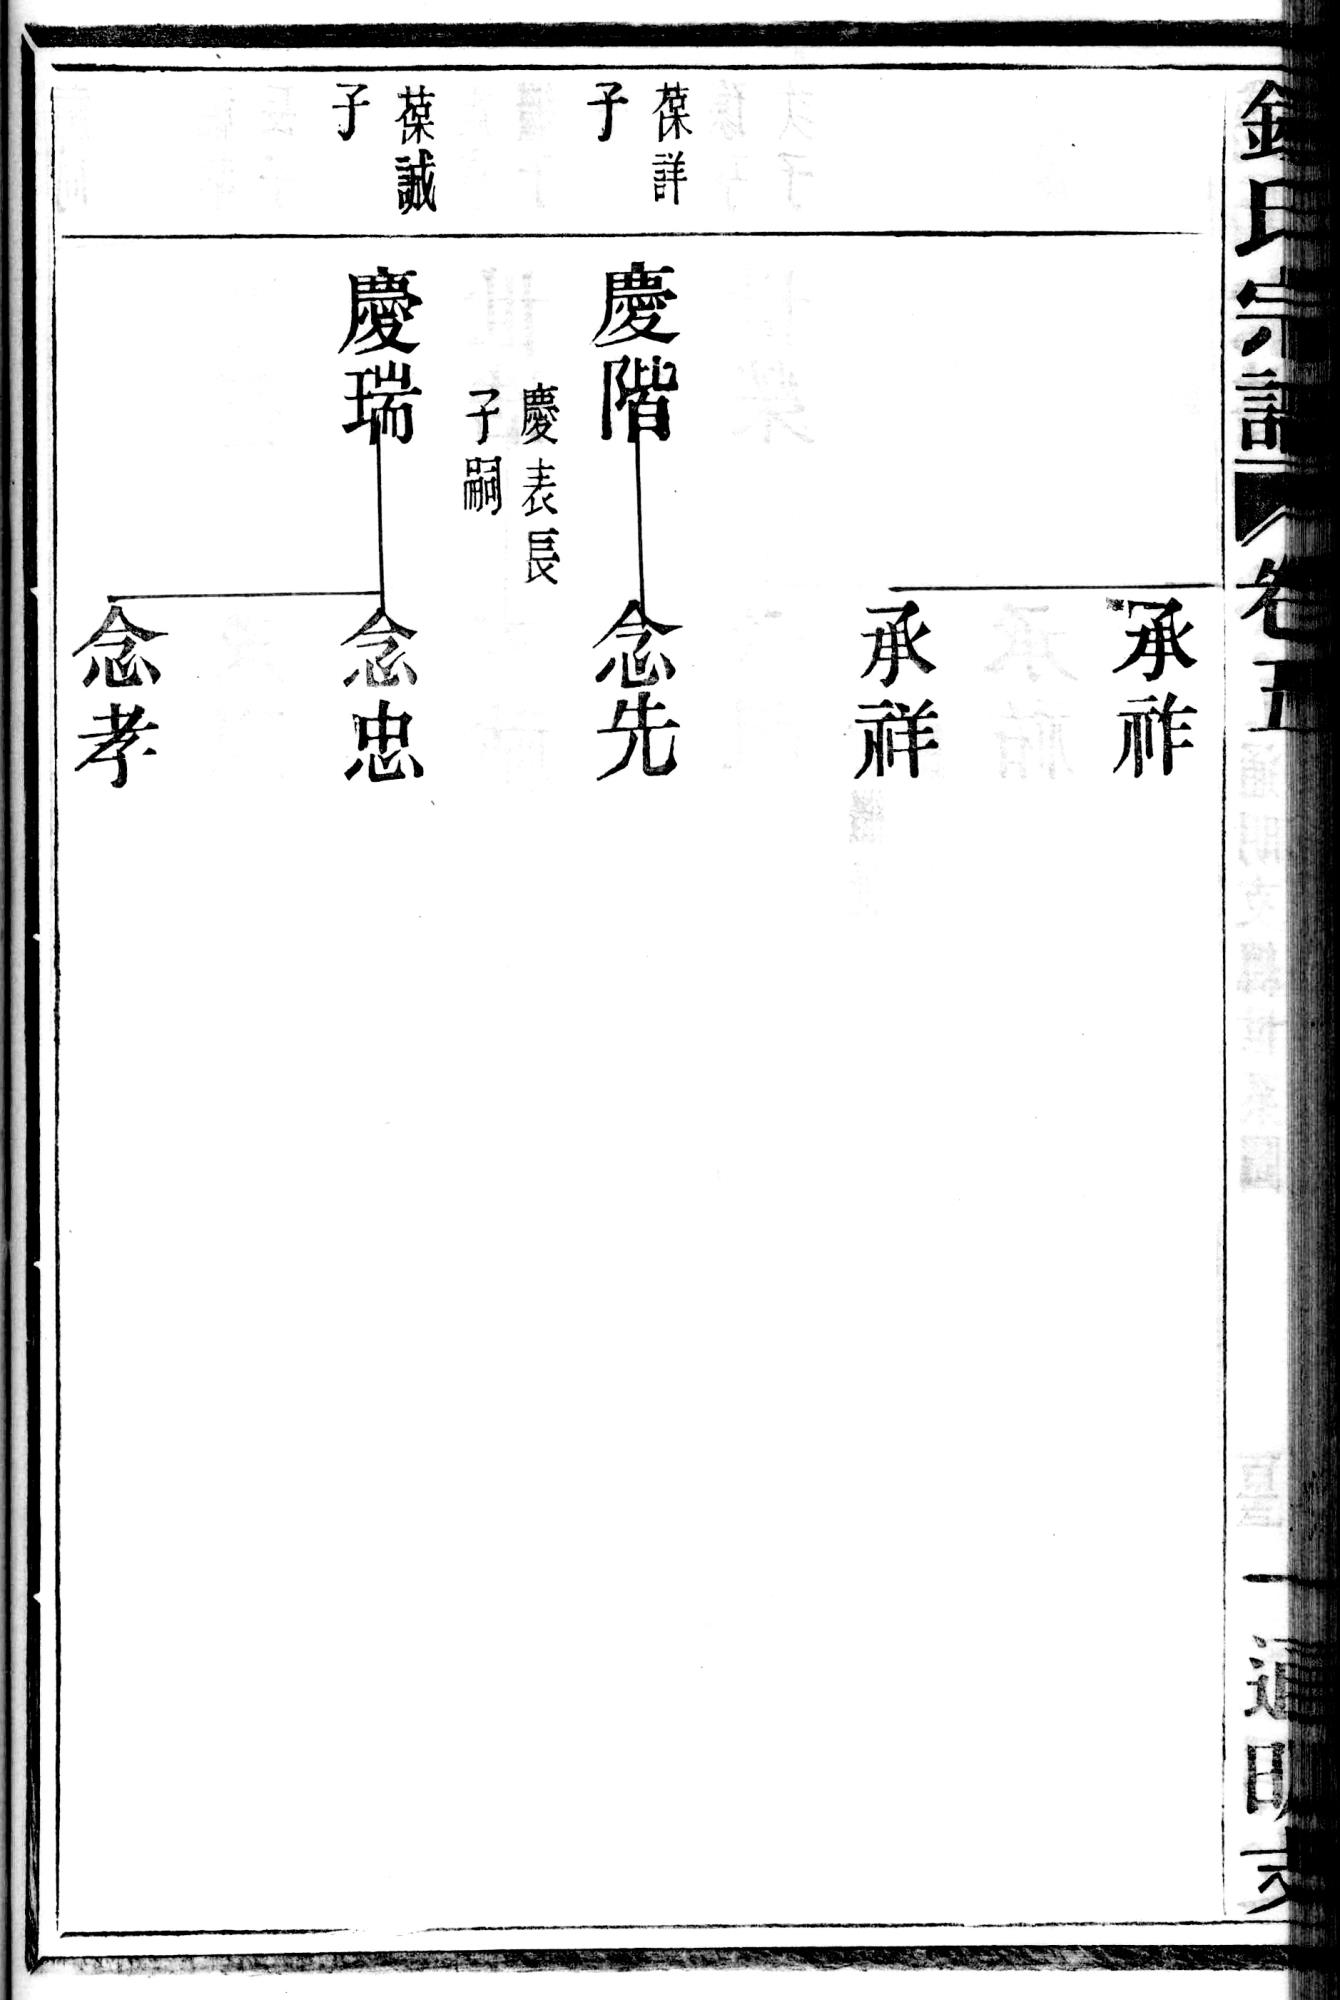 氏宗譜
卷五
一
通明支
承祚
承祥
葆詳
子
慶階
念先
慶表長
子嗣
葆誠
子
慶瑞
念忠
念孝